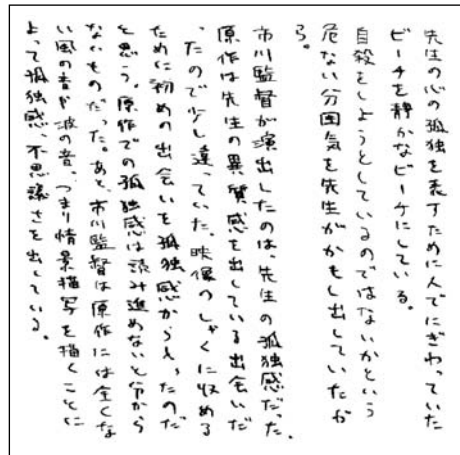 先生の心の孤独を表すために人でにぎわっていた
ビーチを静かなビーチにしている。
自殺をしようとしているのではないかという
危ない分囲気を先生がかもし出していたが
る。
市川監督が演出したのは、先生の孤独感だった。
原作は先生の異質感を出している出会いだ
ったので少し違っていた。映像のしゃくに収める
ために初めの出会いを孤独感からとったのだ
と思う。原作での孤独感は読み進めないと分から
ないものだった。あと、市川監督は原作には全くな
い風の音が波の音、つまり情景描写を描くことに
よって孤独感、不思議さを出している。